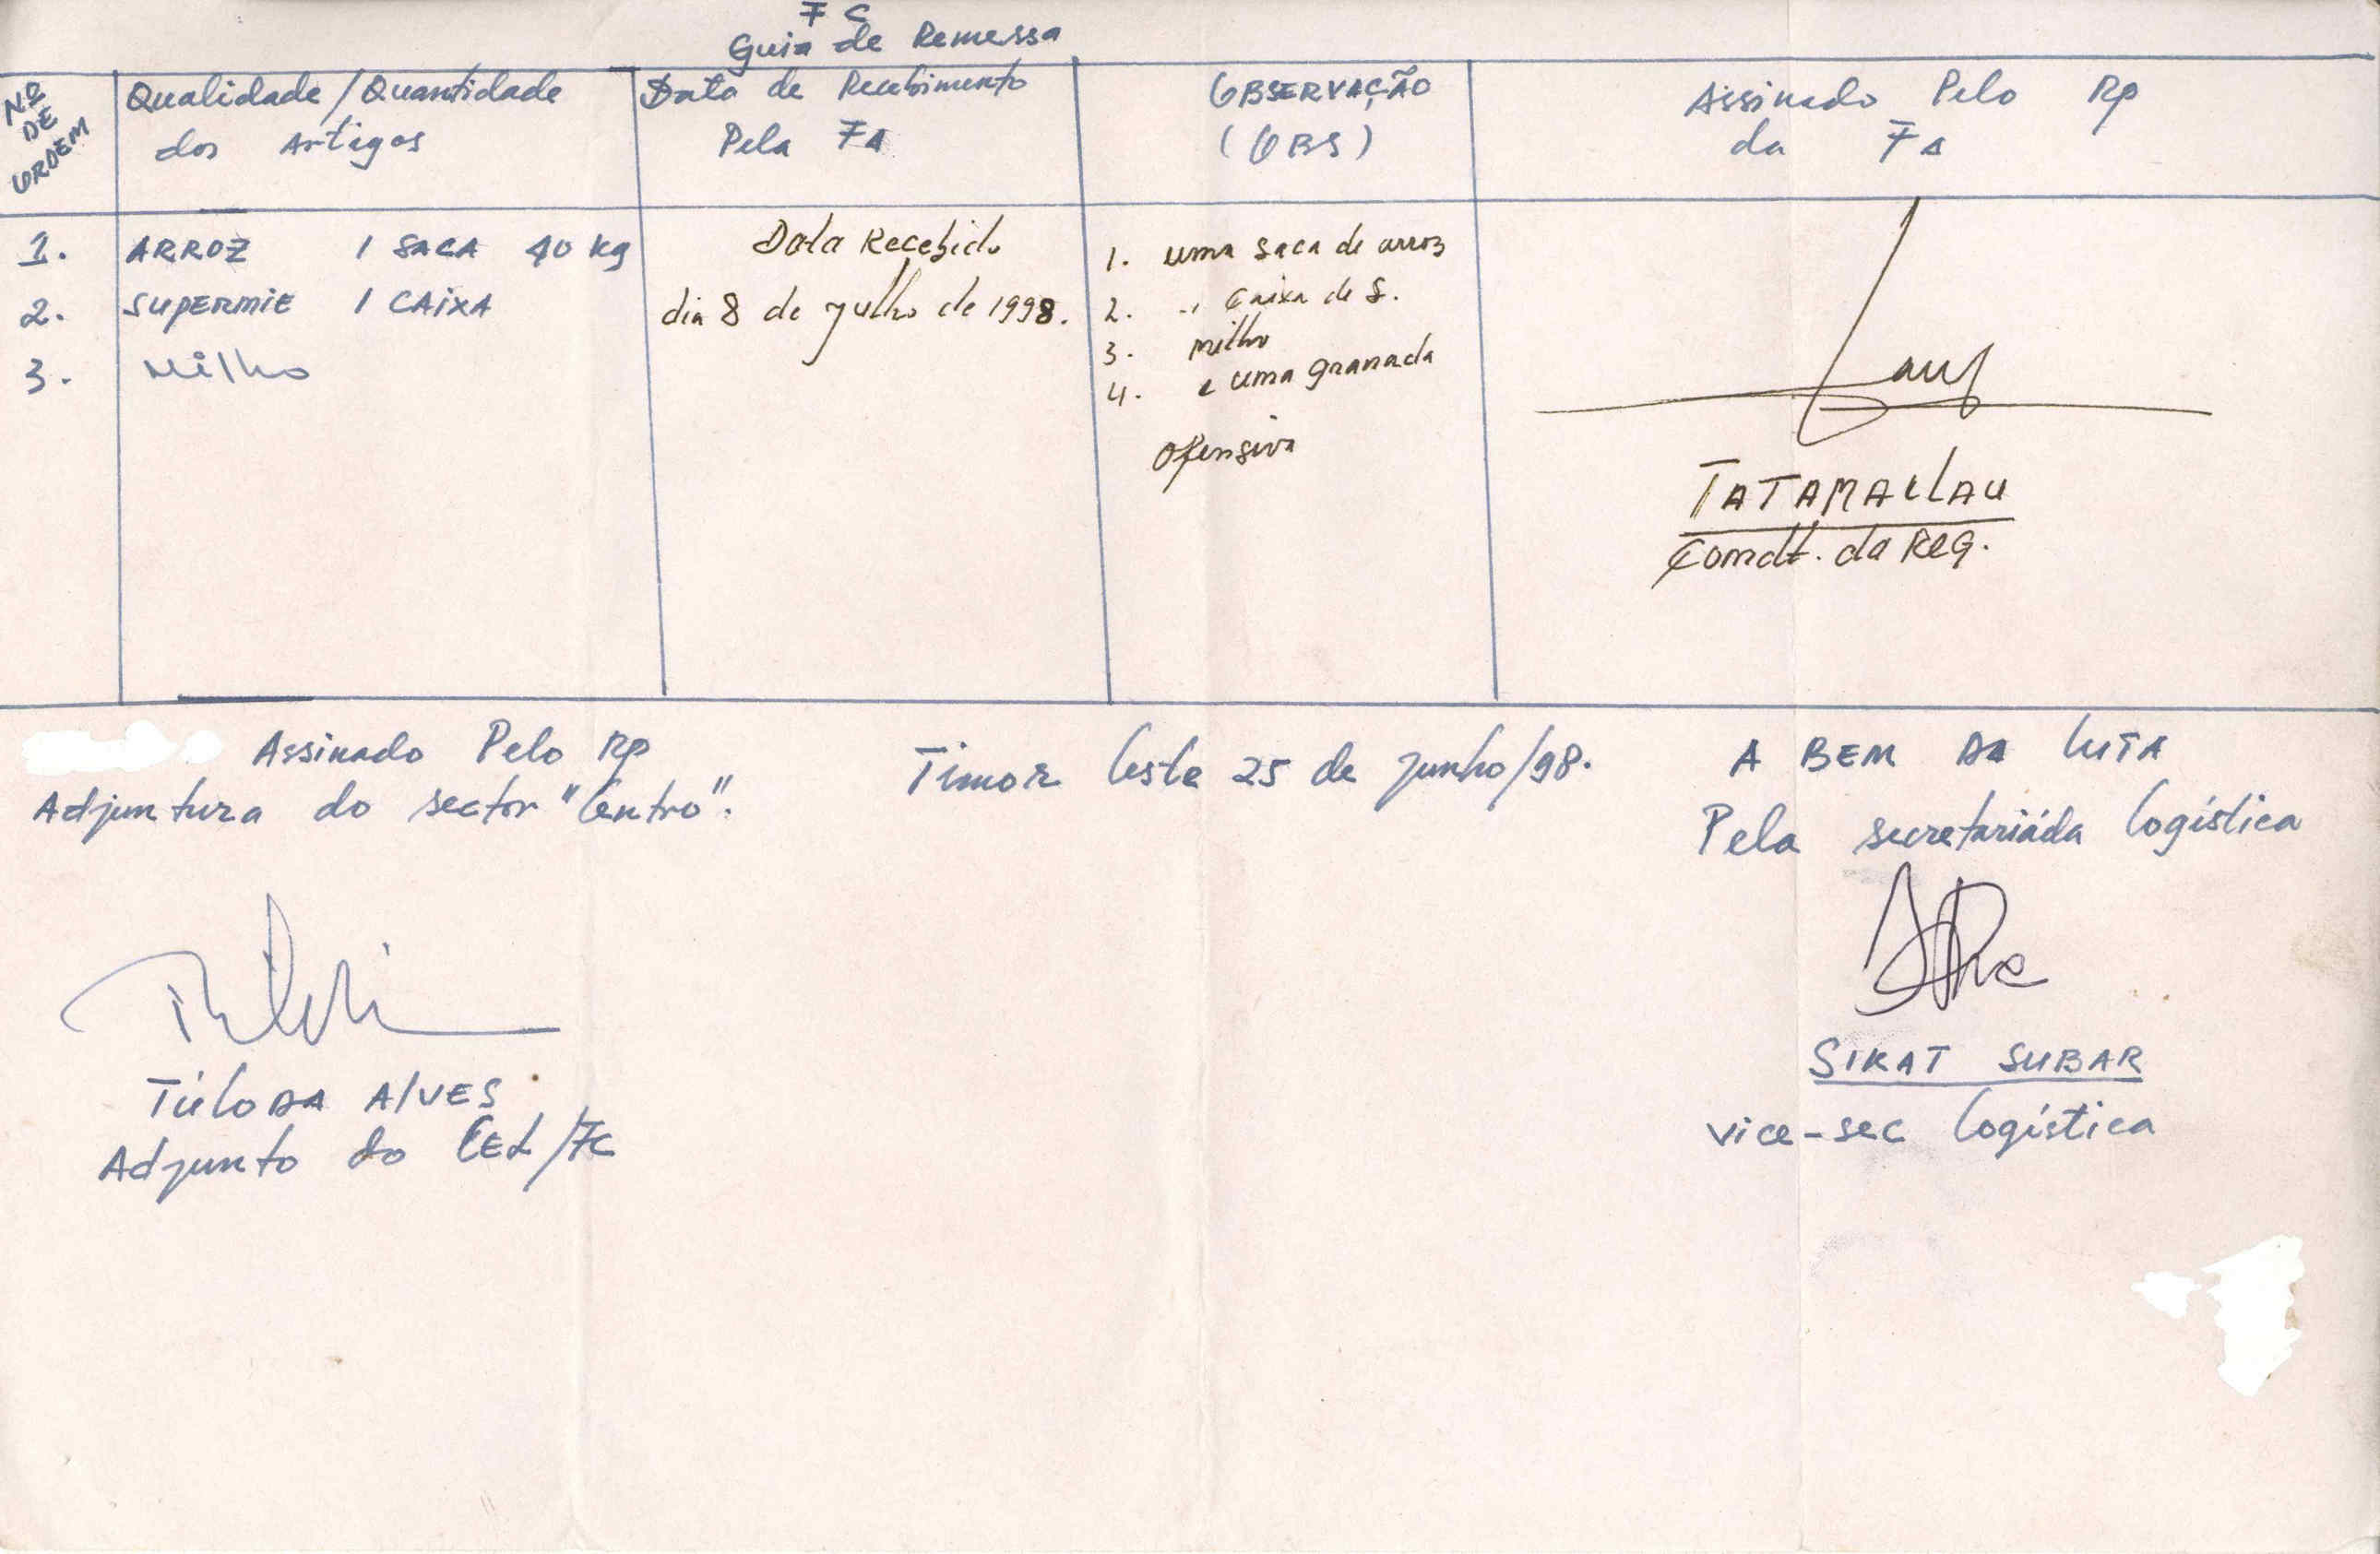 FC
Guia de Remessa
Nº DE ORDEM
Qualidade/Quantidade
dos Artigos
Data de Recebimento
Pela FA
OBSERVAÇÃO
(OBS)
Assinado Pelo Rp
da FA
1. ARROZ 1 SACA 40 kg
2. SUPERMIE 1 CAIXA
3. Milho
Data Recebido
dia 8 de Julho de 1998.
1. uma saca de arroz
2. " Caixa de S.
3. milho
4. e uma granada
ofensiva
TATAMAILAU
Comdt. da Reg.
Assinado Pelo Rp
Adjuntura do sector "Centro".
Timor Leste 25 de Junho/98.
A BEM DA LUTA
Pela secretariáda Logística
TúLO DA ALVES
Adjunto do CEL/FC
SIKAT SUBAR
vice-sec Logística